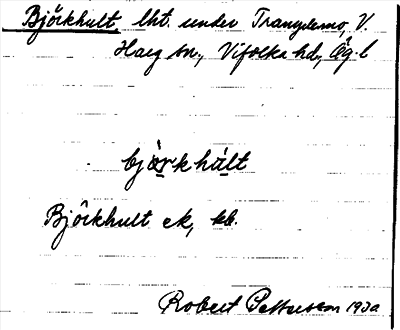 Björkhult, lht. under Tranydemo, V.
Harg sn., Vifolka hd, Ög. l
björkhult
Björkhult ek, kb.
Robert Pettersson 1930